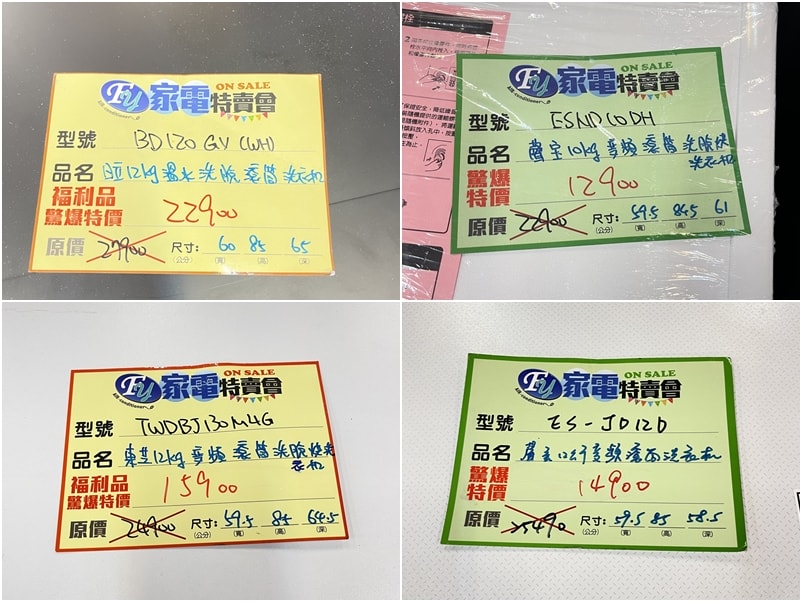 Fu 家電特賣會 ON SALE
air conditioner
型號 BD120GV(WH)
品名 日立12kg溫水洗脫滾筒洗衣机
福利品
驚爆特價 22900
原價 27900 尺寸: 60 85 65
(公分) (寬) (高) (深)
Fu 家電特賣會 ON SALE
air conditioner
型號 ESND10DH
品名 聲宝10kg变頻滾筒洗脫烘
洗衣机
驚爆
特價 12900
原價 22900 尺寸: 59.5 84.5 61
(公分) (寬) (高) (深)
Fu 家電特賣會 ON SALE
air conditioner
型號 TWDBJ130M4G
品名 東芝12kg变頻滾筒洗脫烘洗
衣机
福利品
驚爆特價 15900
原價 24900 尺寸: 59.5 85 64.5
(公分) (寬) (高) (深)
Fu 家電特賣會 ON SALE
air conditioner
型號 ES-JD12D
品名 聲宝12公斤变頻滾筒洗衣机
驚爆
特價 14900
原價 25490 尺寸: 59.5 85 58.5
(公分) (寬) (高) (深)